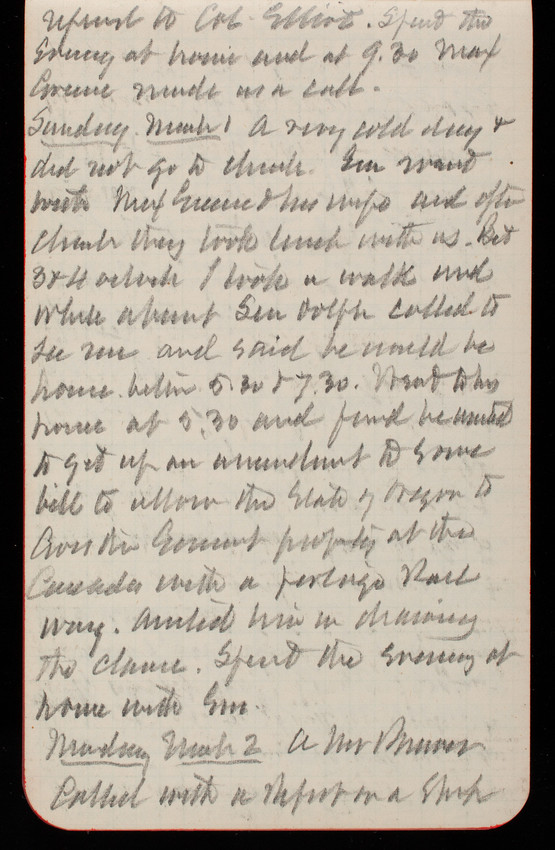 refused to Col Elliot. Spend the
Evening at home and at 9.30 Max
Greene made us a call.
Sunday March 1 A very cold day &
did not go to church. Em went
with Max Greene & his wife and after
church they took lunch with us. Bet
3 & 4 oclock I took a walk and
while absent Sen Dolph called to
see me and said he would be
home betw 5.30 & 7.30. Went to his
home at 5.30 and found he wanted
to get up an amendment to some
bill to allow the State of Oregon to
Cross the Goverment property at the
Cascades with a portage Rail
way. Assisted him in drawing
the clause. Spend the evening at
home with Em.
Monday March 2 A Mr
Called with a report on a